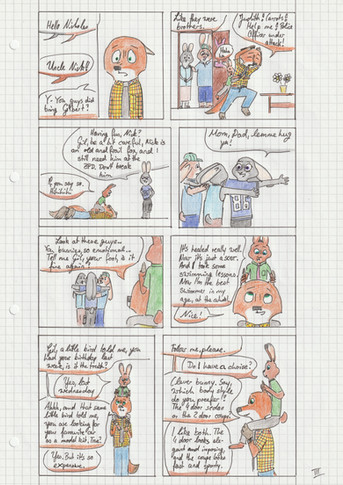 Hello Nicholas
Uncle Nick!!
Y-You guys did
bring Gilbert?
Like they were
brothers.
Haha
Judith! Carrots!
Help me! Police
Officer under
attack!
Having fun, Nick?
Gil, be a bit careful, Nick is
an old and frail fox, and I
still need him at the
ZPD. Don't break
him.
If you say so.
Mom, Dad, lemme hug
ya!
Look at these guys...
Ya, bunnies, so emotional...
Tell me Gil, your foot, is it
fine again?
It's healed really well.
Now it's just a scar.
And I took some
swimming lessons.
Now I'm the best
swimmer in my
age, at the school.
Nice!
Gil, a little bird told me, you
had your birthday last
week, is it the truth?
Yes, last
wednesday
Ahhh, and that same
little bird told me,
you are looking for
your favourite car
as a model kit, True?
Yes. But it's so
expensive.
Follow me, please.
Do I have a choice?
Clever bunny. Say,
which body style
do you prefer?
The 4 door sedan
or the 2 door coupe?
I like both. The
4 door looks ele-
gant and imposing,
and the coupe looks
fast and sporty.
III